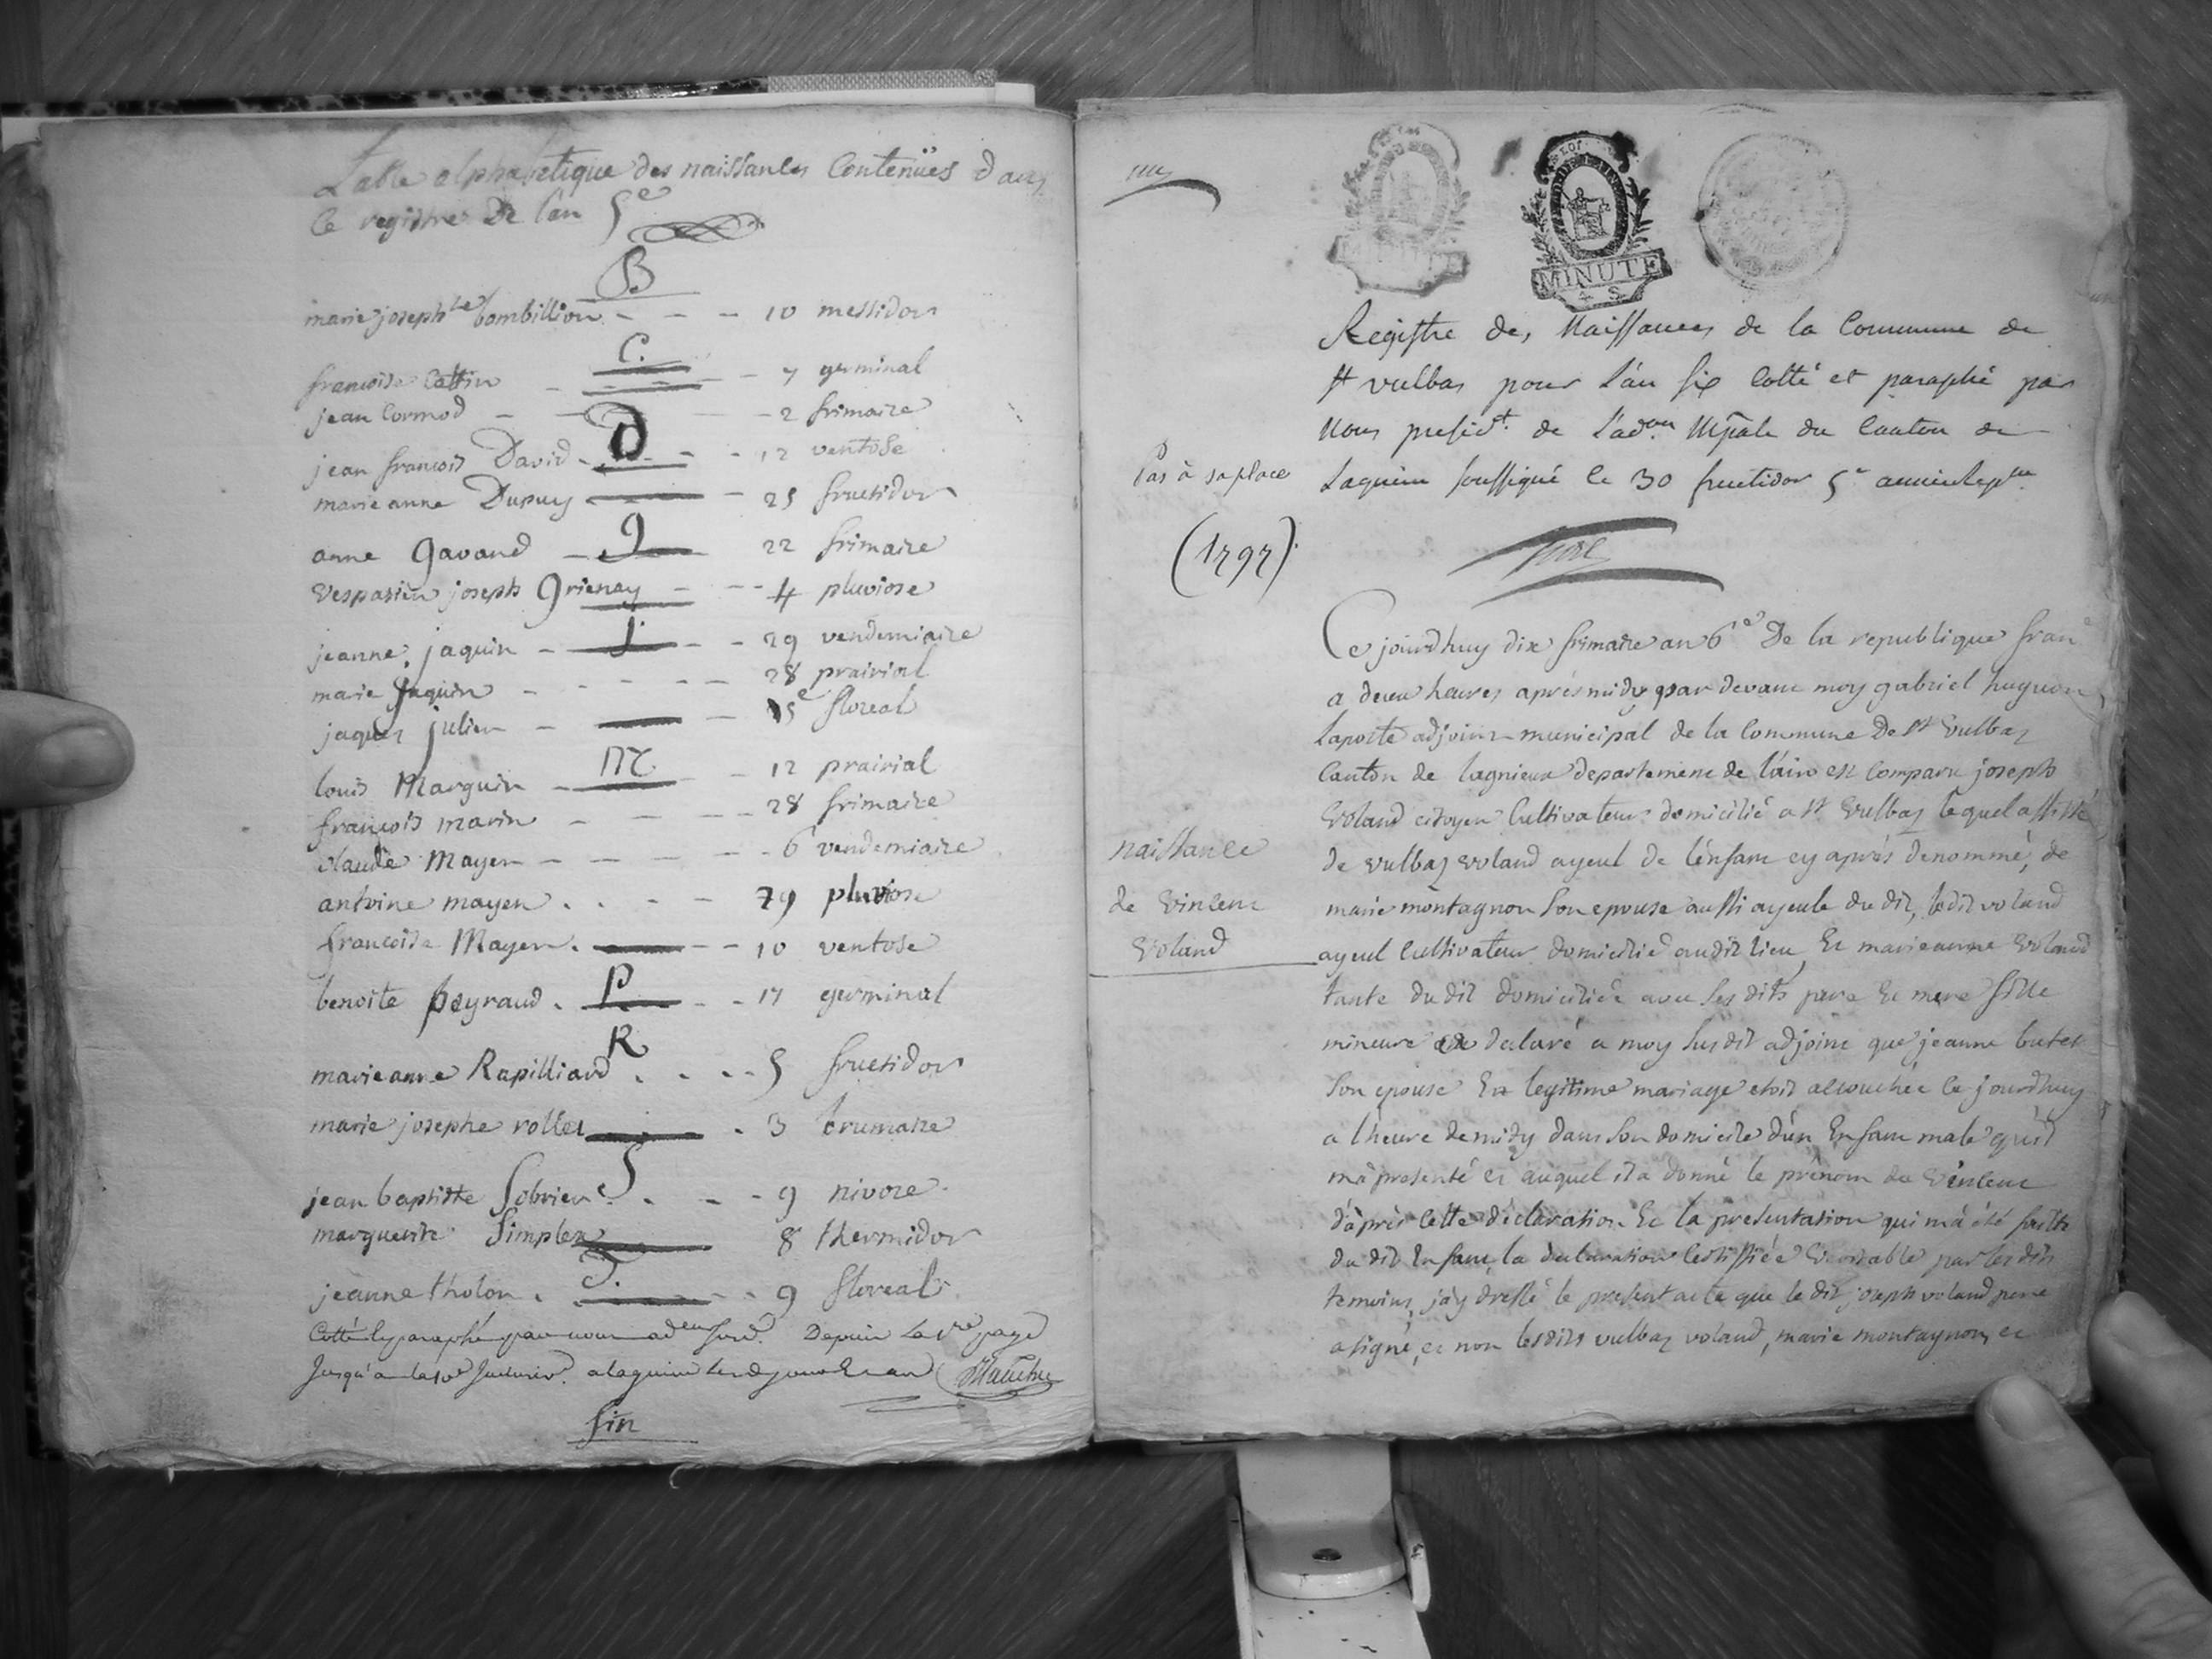 Table alphabetique des naissances Contenües dans
Ce registre De l'an 5e
B
marie josephte bombillion - - - 10 messidor
C.
francoise Cattin - - 7 germinal
jean Cormod - - - 2 frimaire
D
jean francois David - - - 12 ventose
marie anne Dupuy - 25 fructidor
G
anne gavand - 22 frimaire
Vespasien joseph grienay - - - 4 pluviose
J.
jeanne jaquin - - - 29 vendemiaire
marie jaquin - - - - - 28 prairial
jaques julien - - 15e floreal
M.
louis Marguin - - 12 prairial
francois marin - - - - 28 frimaire
claude Mayen - - - - - 6 vendemiaire
antoine mayen . . - - 29 pluviose
francoise Mayen . - - 10 ventose
P
benoite peyraud . - - 17 germinal
R
marie anne Rapilliard . . . . 5 fructidor
marie josephe rollet . 3 brumaire
S
jean baptiste Sobrien . - - 9 nivose
marguerite Simplex 8 thermidor
T.
jeanne tholon . - - 9 floreal
Cotté et paraphé par nous Depuis La 1re page
Jusqu'a
fin
MINUTE
MINUTE
4 S
LOI
Registre des Naissances de la Commune de
st vulbas pour l'an six Cotté et paraphé par
Nous presidt. de l'adon Mpale du Canton de
Pas à sa place
Lagnieu soussigné le 30 fructidor 5e année Rep
(1797).
Ce jourdhuy dix frimaire an 6e De la republique fran
a deux heures après midy par devant moy gabriel hugnon
Laposte adjoint municipal de la Commune De st Vulbas
Canton de lagnieux departement de l'ain est Comparu joseph
Voland citoyen Cultivateur domicilié a st Vulbas lequel assisté
naissance
de vulbas voland ayeul de l'enfant cy après denommé, de
de Vincent
marie montagnon son epouse aussi ayeule du dit, ledit voland
Voland
ayeul Cultivateur domicilié audit lieu, Et marie anne Voland
tante du dit domiciliée avec ses dits pere Et mere fille
mineure a declaré a moy susdit adjoint que jeanne butet
son epouse En legitime mariage etoit accouchée ce jourdhuy
a l'heure de midy dans son domicile d'un Enfant male qu'il
m'a presenté et auquel il a donné le prenom de Vincent
d'après Cette déclaration Et la presentation qui m'a été faitte
du dit Enfant, la declaration Certiffiée Veritable par les dits
temoins, j'ay dressé le present acte que le dit joseph voland pere
a signé, et non lesdits vulbas voland, marie montagnon, et